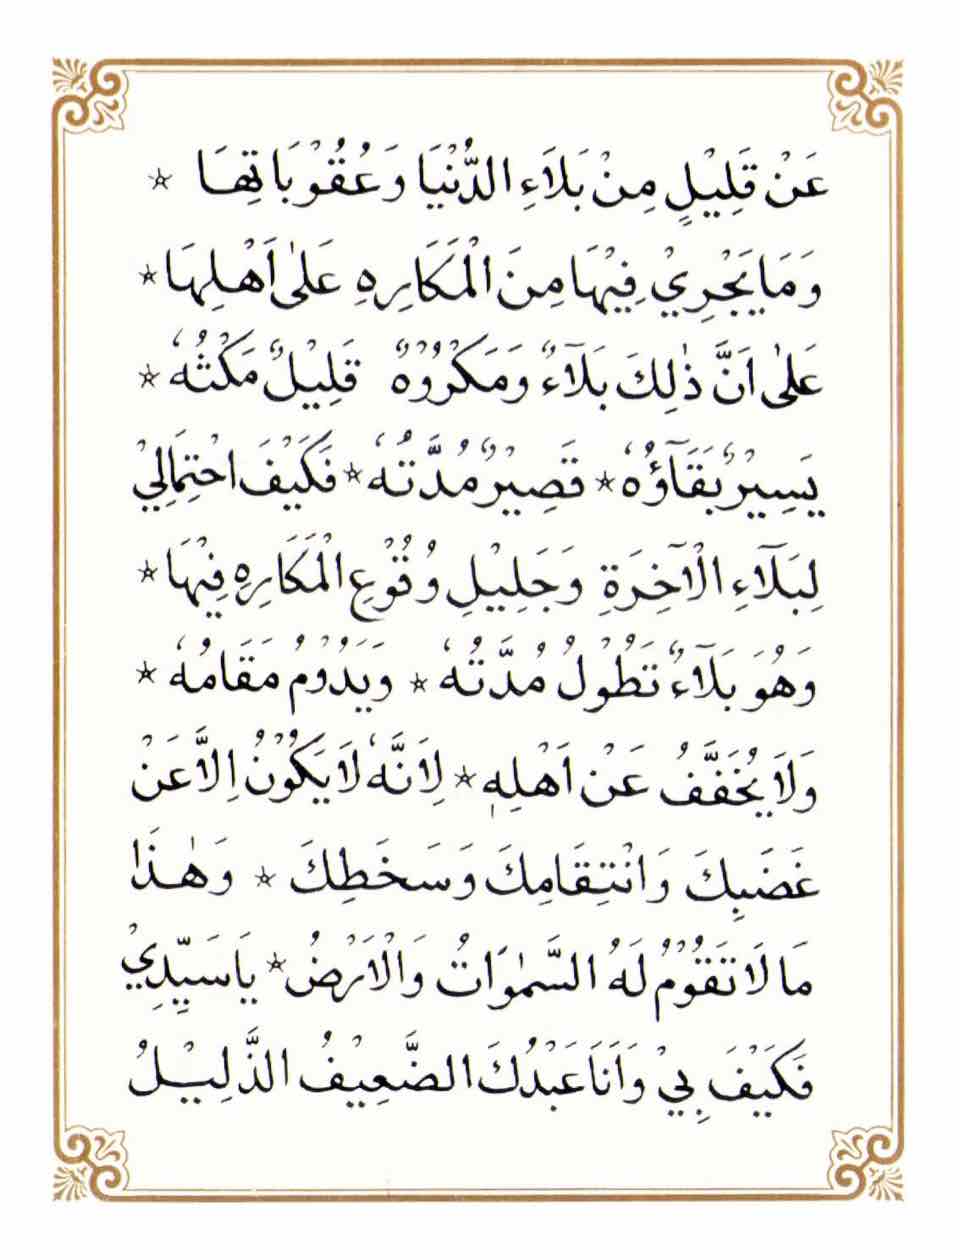 عَنْ قَلِيْلٍ مِنْ بَلَاءِ الدُّنْيَا وَعُقُوْبَاتِهَا ☆
وَمَا يَجْرِيْ فِيْهَا مِنَ الْمَكَارِهِ عَلٰى اَهْلِهَا ☆
عَلٰى اَنَّ ذٰلِكَ بَلَآءٌ وَمَكْرُوْهٌ قَلِيْلٌ مَكْثُهٗ ☆
يَسِيْرٌ بَقَآؤُهٗ ☆ قَصِيْرٌ مُدَّتُهٗ ☆ فَكَيْفَ احْتِمَالِيْ
لِبَلَآءِ الْاٰخِرَةِ وَجَلِيْلِ وُقُوْعِ الْمَكَارِهِ فِيْهَا ☆
وَهُوَ بَلَآءٌ تَطُوْلُ مُدَّتُهٗ ☆ وَيَدُوْمُ مَقَامُهٗ ☆
وَلَا يُخَفَّفُ عَنْ اَهْلِهٖ ☆ لِاَنَّهٗ لَا يَكُوْنُ اِلَّا عَنْ
غَضَبِكَ وَانْتِقَامِكَ وَسَخَطِكَ ☆ وَهٰذَا
مَا لَا تَقُوْمُ لَهُ السَّمٰوَاتُ وَالْاَرْضُ ☆ يَا سَيِّدِيْ
فَكَيْفَ بِيْ وَاَنَا عَبْدُكَ الضَّعِيْفُ الذَّلِيْلُ